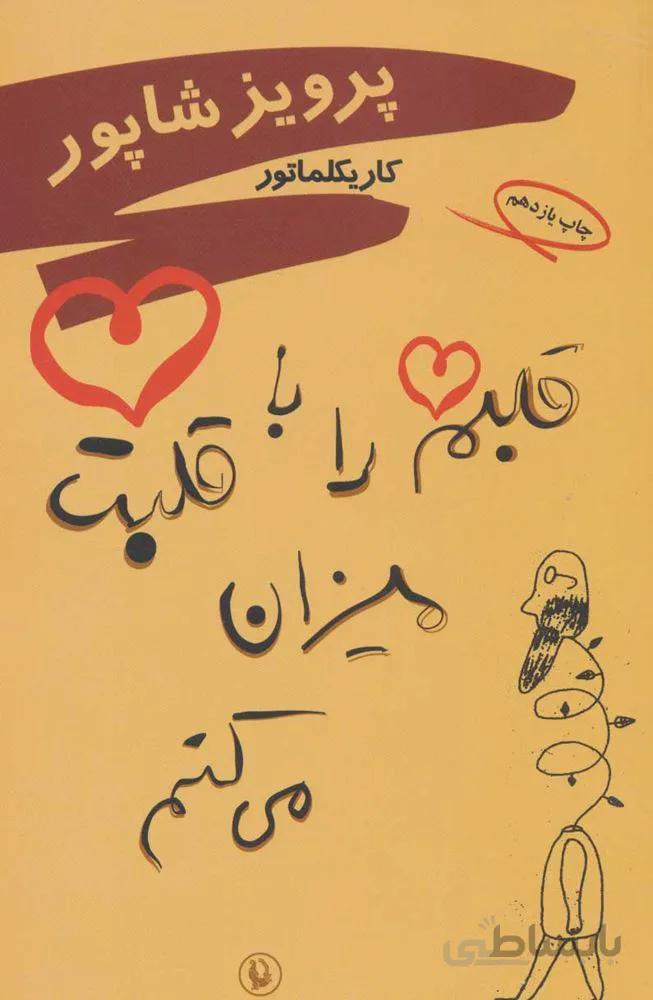 پرویز شاپور
کاریکلماتور
چاپ یازدهم
قلبم را با قلبت
میزان
می‌کنم
باساطی